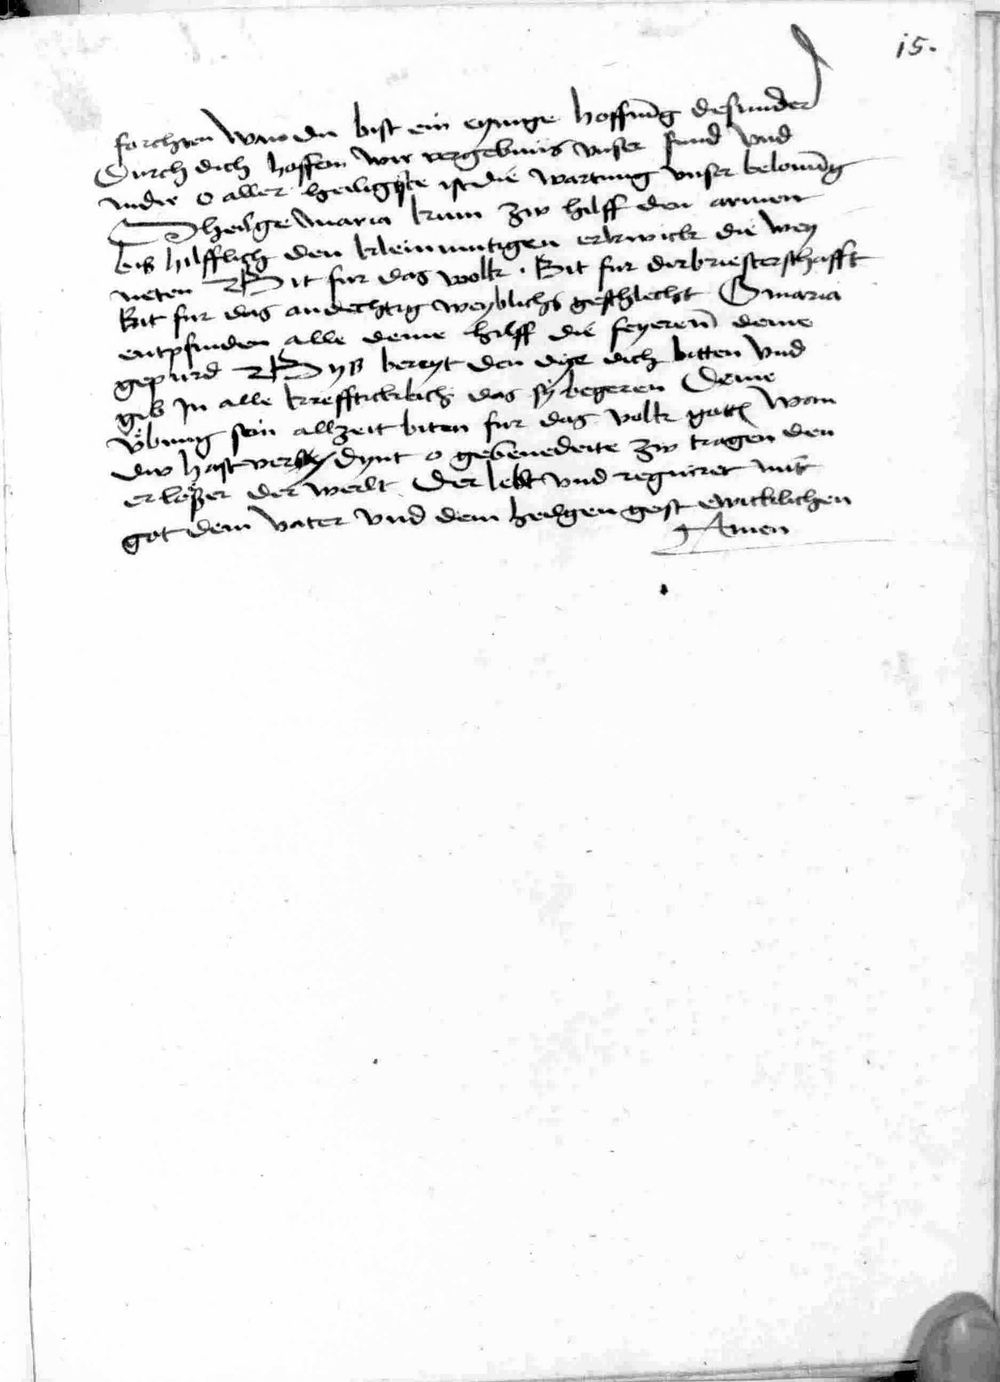 15.
forchten wan du bist ein eynige hoffnūg der sunder
Durch dich hoffen wir vergebnus vnser sund vnd
in dir o aller heiligiste ist die wartung vnser belonūg
O heilge maria kum zw hilff den armen
bis hilfflich den kleinmutigen erkwick die wey
neten Bit fur das volk. Bit fur die briesterschafft
Bit fur das andechtig weyblichs geschlecht O maria
entpfinden alle deine hilff die feyeren deine
gepurd Byß bereyt den dye dich bitten vnd
gib in alle kreffticklich das sy begeren Deine
vbung sein allzeit biten fur das volk gottes wan
dw hast verdynt o gebenedeite zw tragen den
erlößer der werlt Der lebt vnd regniret mit
got dem vater vnd dem heilgen geist ewicklichen
Amen